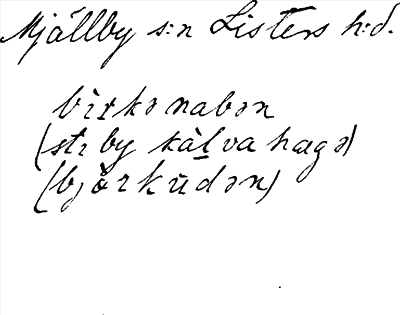 Mjällby s:n Listers h:d.
bìrkənabən
(stɿby kàl̠vahagə)
(bjǒrkūdən)